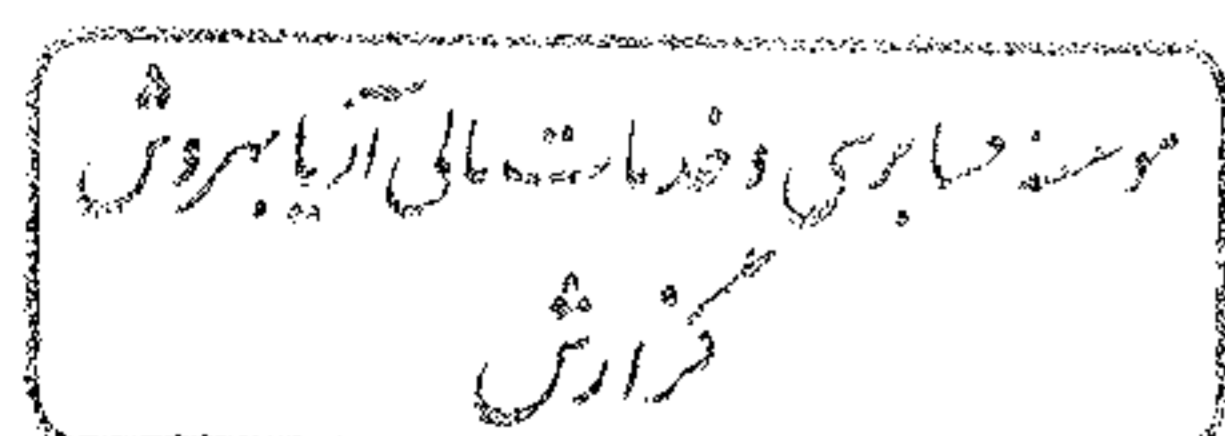 موسسه حسابرسی و خدمات مالی آریا بهروش
گزارش